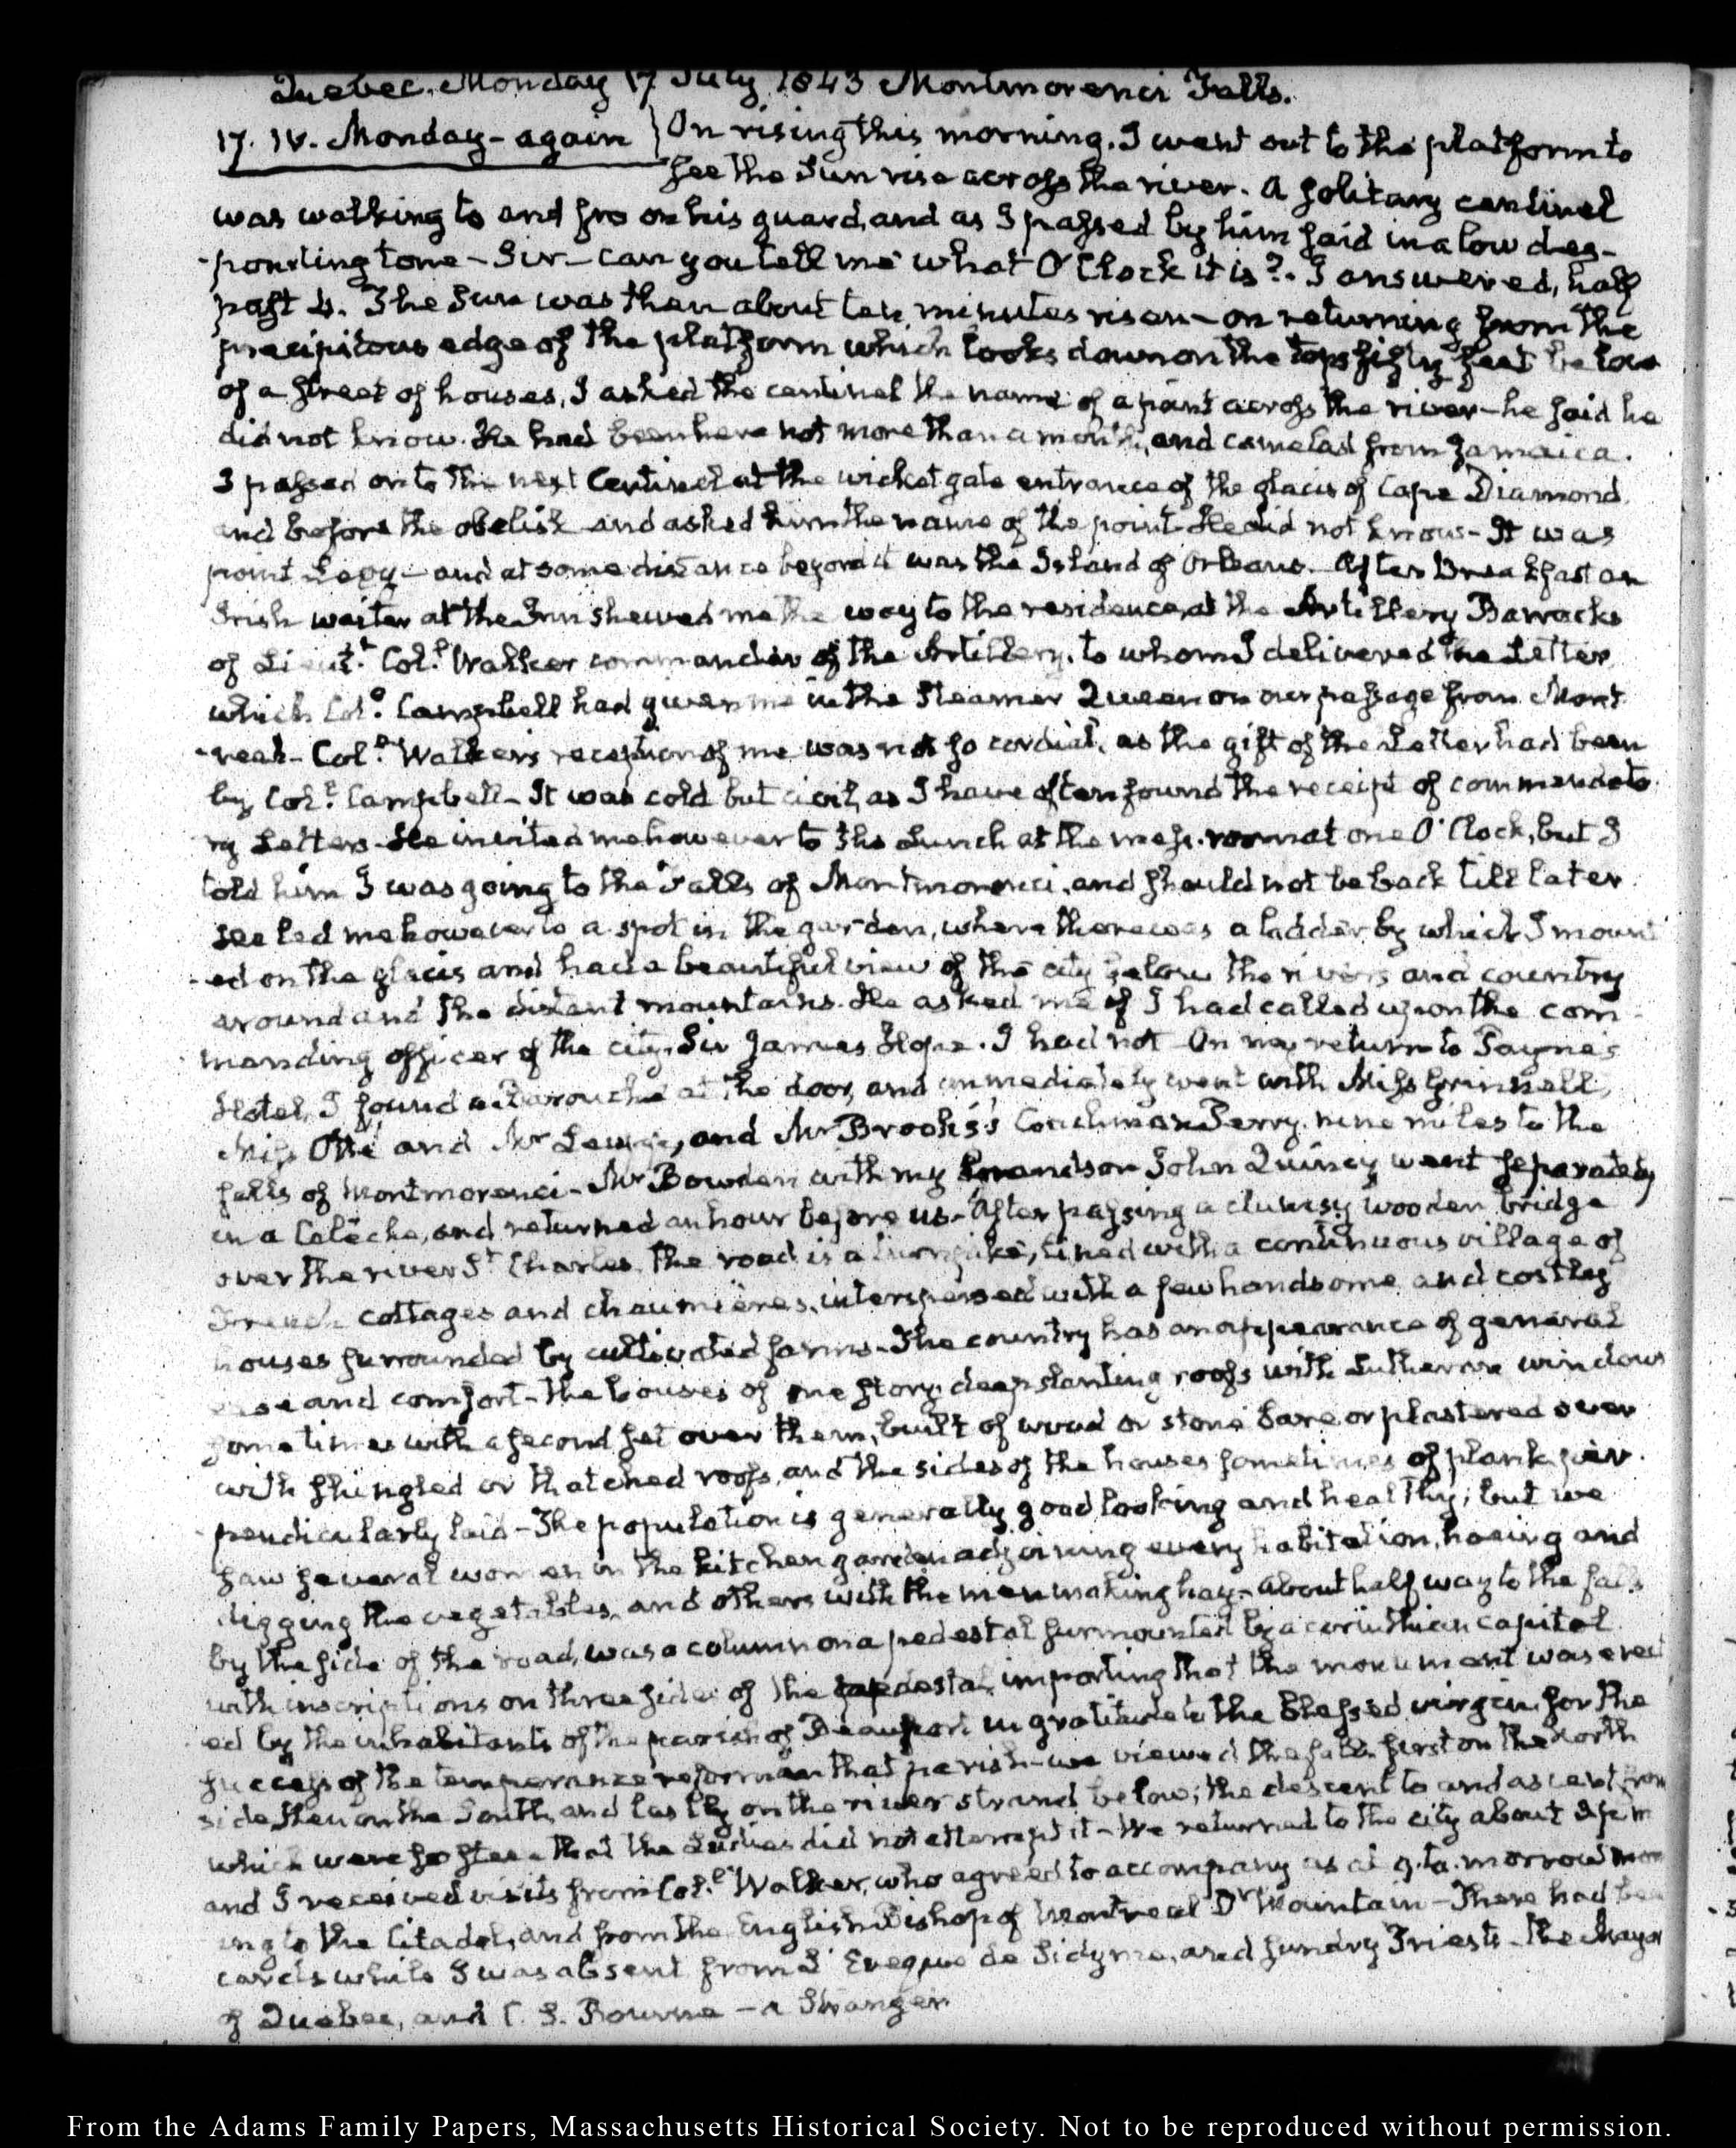 Quebec. Monday 17 July 1843 Montmorenci Falls.
17. IV. Monday - again } On rising this morning, I went out to the platform to
see the Sun rise across the river. A solitary centinel
was walking to and fro on his guard, and as I passed by him said in a low des-
-ponding tone - Sir - can you tell me what O'Clock it is? - I answered, half
past 4. The Sun was then about ten minutes risen - on returning from the
precipitous edge of the platform which looks down on the tops fifty feet below
of a street of houses, I asked the centinel the name of a point across the river - he said he
did not know. He had been here not more than a month, and came last from Jamaica.
I passed on to the next Centinel at the wicket gate entrance of the glacis of Cape Diamond
and before the obelisk and asked him the name of the point - He did not know - It was
point Levy - and at some distance beyond it was the Island of Orleans. After Breakfast an
Irish waiter at the Inn shewed me the way to the residence, at the Artillery Barracks
of Lieut.t Col.l Walker commander of the Artillery, to whom I delivered the Letter
which Col.l Campbell had given me in the Steamer Queen on our passage from Mont
-real - Col.l Walker's reception of me was not so cordial, as the gift of the Letter had been
by Col.l Campbell - It was cold but civil, as I have often found the receipt of commendato
ry Letters - He invited me however to the Lunch at the mess-room at one O'Clock, but I
told him I was going to the Falls of Montmorenci, and should not be back till later
He led me however to a spot in the garden, where there was a ladder by which I mount
-ed on the glacis and had a beautiful view of the city below the rivers and country
around and the distant mountains. He asked me if I had called upon the com-
manding officer of the city, Sir James Hope. I had not. On my return to Payne's
Hotel, I found a Barouche at the door, and immediately went with Miss Grinnell,
Miss Otté and Mr and Mr Brooks's Coachman Perry, nine miles to the
falls of Montmorenci - Mr Bowden with my Grandson John Quincy went separately
in a Calêche, and returned an hour before us - After passing a clumsy wooden bridge
over the river St Charles, the road is a turnpike, lined with a continuous village of
French cottages and chaumières, interspersed with a few handsome and costly
houses surrounded by cultivated farms - The country has an appearance of general
ease and comfort - the houses of one story, deep slanting roofs with Lutheran windows
sometimes with a second set over them, built of wood or stone bare or plastered over
with shingled or thatched roofs, and the sides of the houses sometimes of plank per-
-pendicularly laid - The population is generally good looking and healthy; but we
saw several women in the kitchen garden adjoining every habitation, hoeing and
digging the vegetables, and others with the men making hay - About half way to the falls
by the side of the road, was a column on a pedestal surmounted by a corinthian capital
with inscriptions on three sides of the pedestal, importing that the monument was erect
ed by the inhabitants of the parish of Beauport in gratitude to the blessed virgin for the
success of the temperance reform in that parish - we viewed the falls first on the North
side, then on the South, and lastly on the river strand below; the descent to and ascent from
which were so steep that the Ladies did not attempt it - We returned to the city about
and I received visits from Col.l Walker, who agreed to accompany us at 9. to-morrow morn
ing to the Citadel, and from the English Bishop of Montreal Dr Mountain - There had been
cards while I was absent from L'Eveque de Sidyme, and sundry Priests - the Mayor
of Quebec, and Bourne - a Stranger
From the Adams Family Papers, Massachusetts Historical Society. Not to be reproduced without permission.